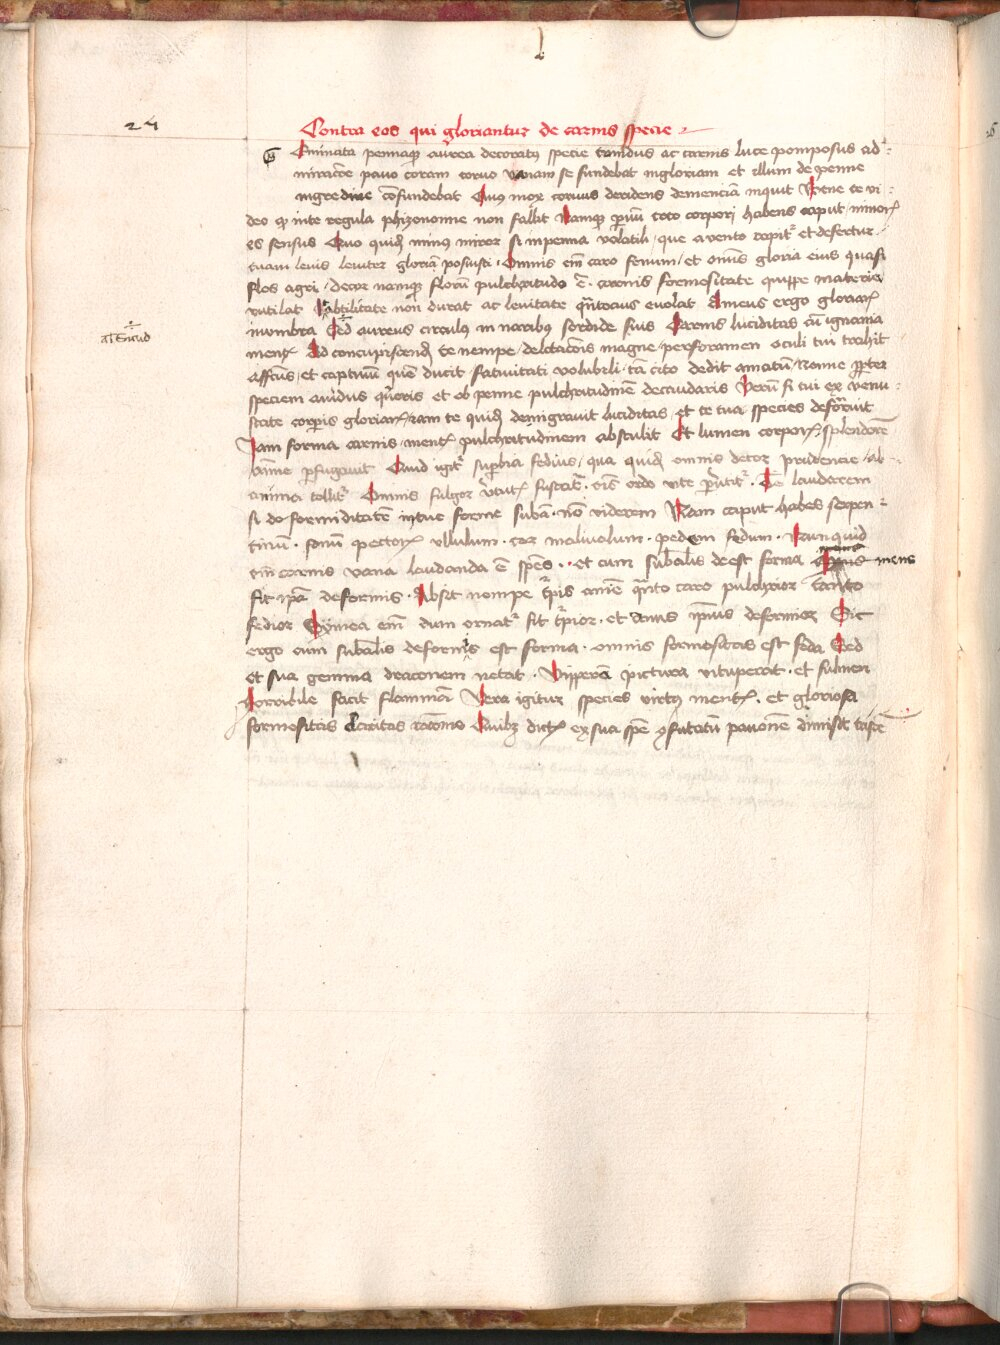 24
Contra eos qui gloriantur de carnis specie
Eminata pennaqꝫ aurea decoratꝰ specie timidus ac carnis luce pomposus ad
miracōne pavo coram corvo vaniam se fundebat ingloriam et illum de penne
ingredine cōfundebat Cuiꝰ mox corvus deridens demenciā inquit Bene te vi
deo qꝫ in te regula phizonomie non fallit Namqꝫ pͣuū toto corpori habens caput minorꝭ
es sensus Quo quidē minꝰ miror si in penna volatili que a vento rapitͬ et defertur
tuam levis leviter gloriā posuisti Omnis em̄ caro fenum et omīs gloria eius quasi
flos agri decor namqꝫ florū pulchritudo ē carnis formositate quippe materie
rutilat labilitate non durat ac levitate evolat Ameus ergo gloriarꝭ
in umbra Sed aureus circulꝰ in naribꝰ sordide suis Carnis luciditas cū ignavia
mentꝭ Ad concupiscendū te nempe delectacōis magne per foramen oculi tui trahit
affcūs et captivū quē ducit fatuitati volubili tā cito dedit amatū Nonne ꝓpter
speciem avidus et ob penne pulchritudinē decaudaris Verū si tui ex venu
state corporis gloriarꝭ iam te quidē denigravit luciditas et te tua species deformit
Iam forma carnis mentꝭ pulchritudinem abstulit Et lumen corporꝭ splendorē
anime ꝑfugavit Quid igitͬ suꝑbia fedius qua quidē omnis decor prudencie ab
anima tollitͬ Omnis fulgor virtutꝭ ois ordo vite Te lauderem
si de formiditatē intue forme nō viderem Nam caput habes serpen
tinū sonū pectorꝭ ullulum cor malivolum pedem fedum Nunquid
em̄ carnis vana laudanda ē spēs et cum subālis deest forma mens
fit ip̄a deformis Absit nempe caro pulchrior tanto
fedior Symea em̄ dum ornatͬ fit et Anus deformior Sic
ergo cum subālis deformis est forma omnis formositas est feda Sed
et sua gemma draconem netat Vipperā pictura vituperat et fulmen
horribile facit flammā Vera igitur species virtꝰ mentꝭ et gloriosa
formositas claritas racōnis Quibꝫ dictꝭ ex sua spē ꝯfutatū pavonē dimisit